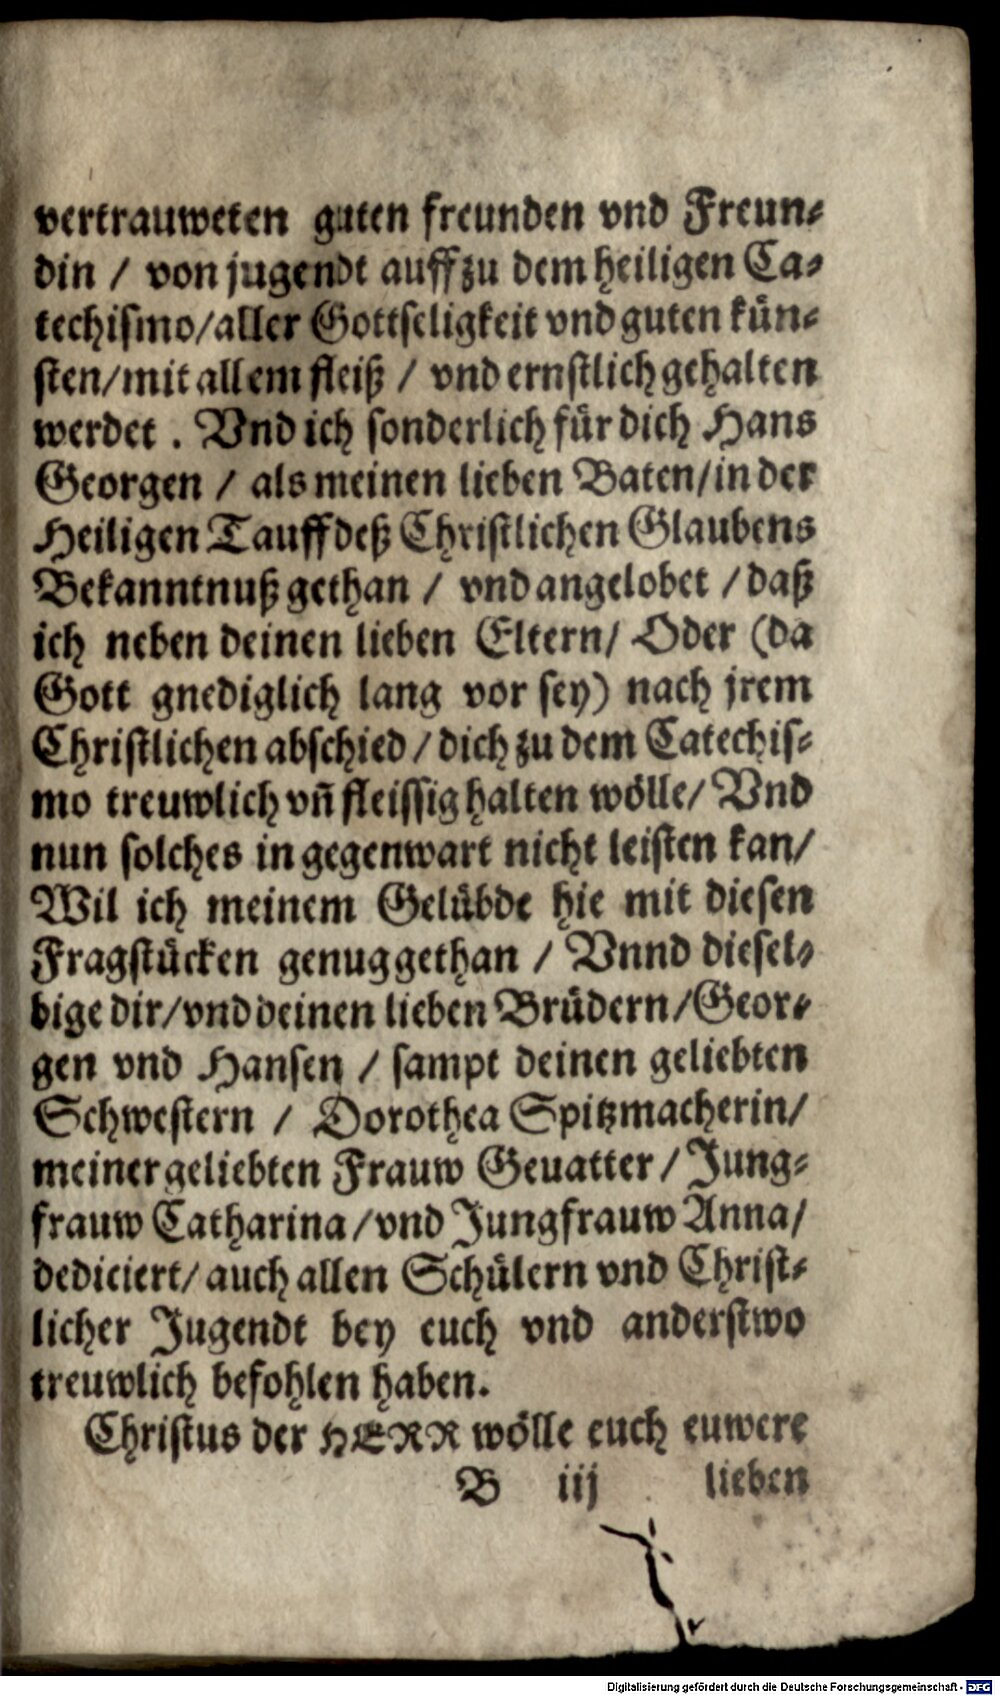 vertrauweten guten freunden vnd Freun-
din / von jugendt auff zu dem heiligen Ca-
techismo/aller Gottseligkeit vnd guten kün-
sten/mit allem fleiß / vnd ernstlich gehalten
werdet . Vnd ich sonderlich für dich Hans
Georgen / als meinen lieben Baten/in der
Heiligen Tauff deß Christlichen Glaubens
Bekanntnuß gethan / vnd angelobet / daß
ich neben deinen lieben Eltern/ Oder (da
Gott gnediglich lang vor sey) nach jrem
Christlichen abschied / dich zu dem Catechis-
mo treuwlich vñ fleissig halten wölle/ Vnd
nun solches in gegenwart nicht leisten kan/
Wil ich meinem Gelübde hie mit diesen
Fragstücken genug gethan / Vnnd diesel-
bige dir/vnd deinen lieben Brüdern/Geor-
gen vnd Hansen / sampt deinen geliebten
Schwestern / Dorothea Spitzmacherin/
meiner geliebten Frauw Geuatter / Jung-
frauw Catharina/vnd Jungfrauw Anna/
dediciert/ auch allen Schülern vnd Christ-
licher Jugendt bey euch vnd anderstwo
treuwlich befohlen haben.
Christus der HERR wölle euch euwere
B iij lieben
Digitalisierung gefördert durch die Deutsche Forschungsgemeinschaft - DFG